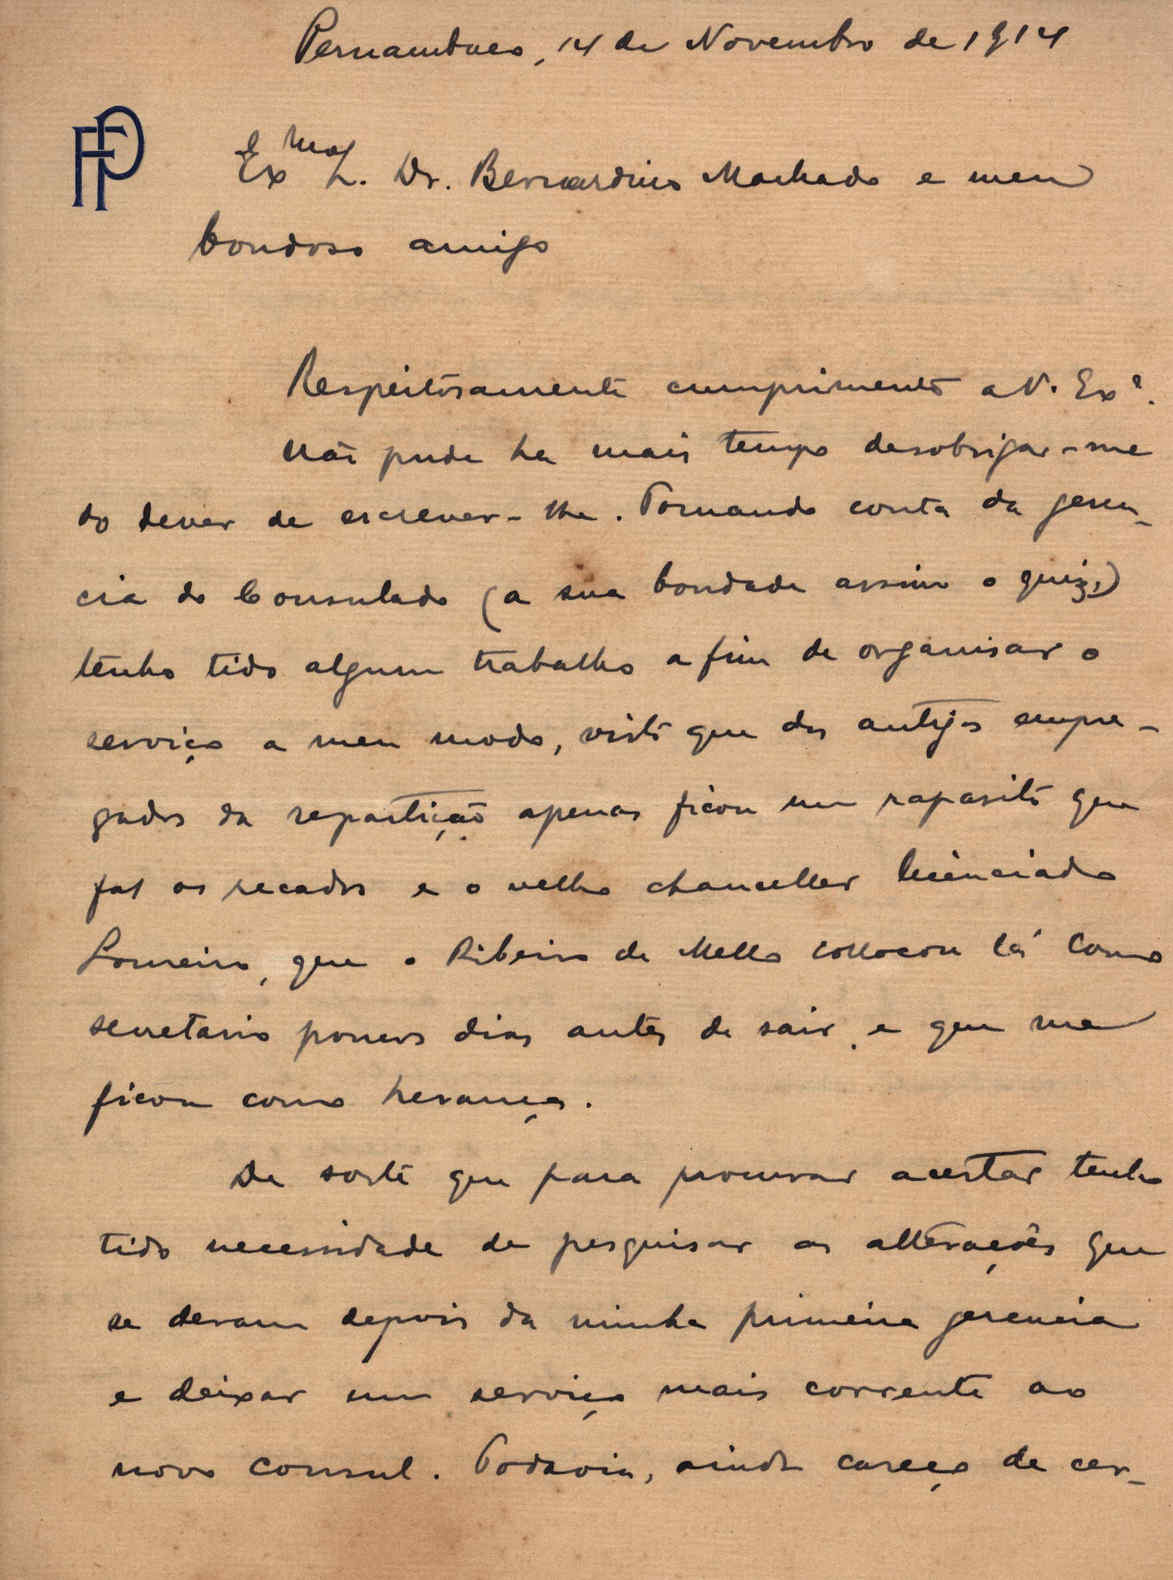 Pernambuco, 14 de Novembro de 1914
FP
Exmo Sr. Dr. Bernardino Machado e meu
bondoso amigo
Respeitosamente cumprimento a V. Exª.
Não pude ha mais tempo desobrigar-me
do dever de escrever-lhe. Tomando conta da geren-
cia do Consulado (a sua bondade assim o quiz,)
tenho tido algum trabalho a fim de organisar o
serviço a meu modo, visto que dos antigos empre-
gados da repartição apenas ficou um rapasito que
faz os recados e o velho chanceller licenciado
Loureiro, que o Ribeiro de Mello collocou lá como
secretario poucos dias antes de sair, e que me
ficou como herança.
De sorte que para procurar acertar tenho
tido necessidade de pesquisar as alterações que
se deram depois da minha primeira gerencia
e deixar um serviço mais corrente ao
novo consul. Todavia, ainda careço de cer-